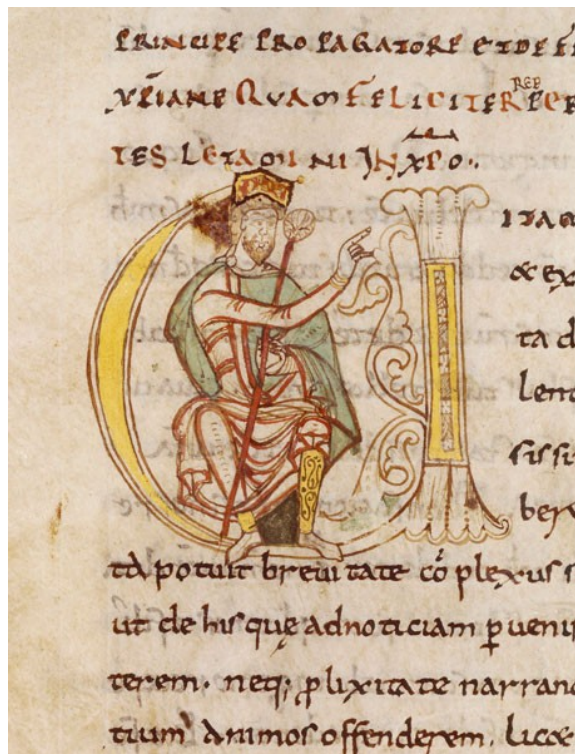 PRINCIPE PROPAGATORE ET DE FE
XPIANE QUAM FELICITER REPE
TES LETAMINI IN XPO.
UITA
& ex
ta d
lent
sissi
beru
ta potuit breuitate cō plexus s
ut de his que ad noticiam p̄ueni
terem. neq; plixitate narran
tium animos offenderem. Lic&